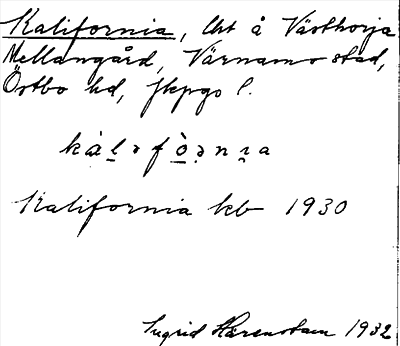 Kalifornia, lht å Västhorja
Mellangård, Värnamo stad,
Östbo hd, Jkpgs l.
kàl̠əfò̠ə̣nɪ̠a
Kalifornia kb 1930
Ingrid Härenstam 1932